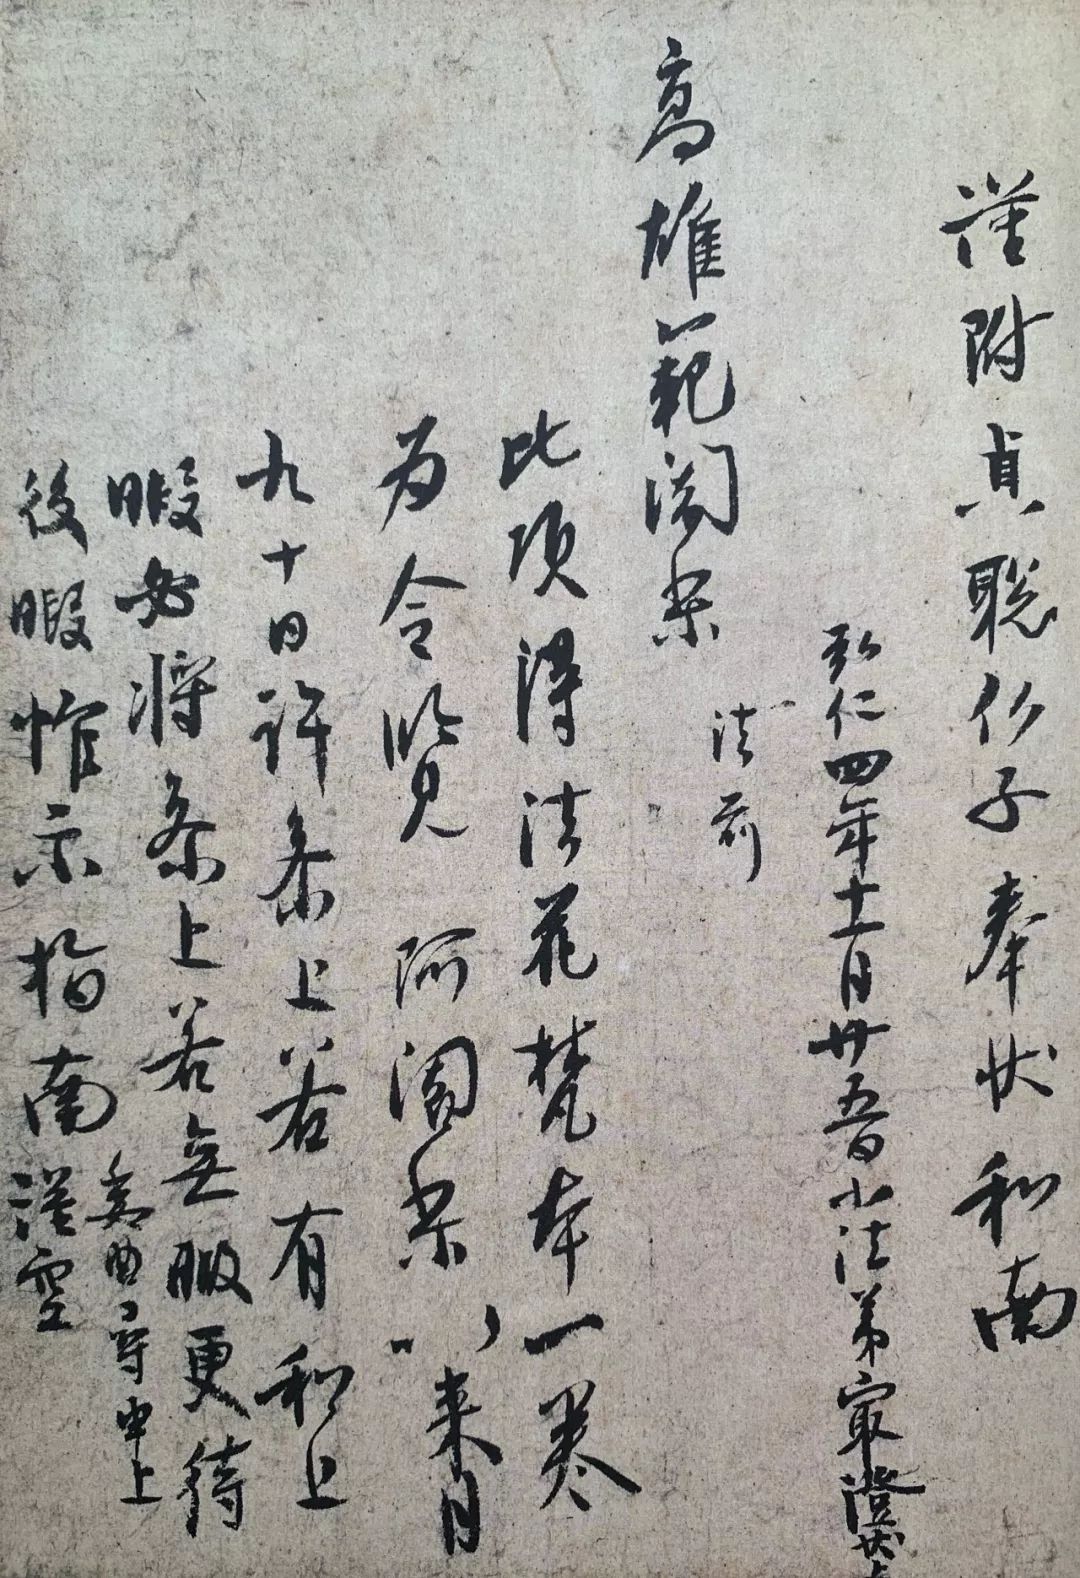 謹附貞聡仏子奉状和南
弘仁四年十一月廿五日小法弟最澄状上
高雄範闍梨
法前
此頃得法花梵本一巻
為令覧阿闍梨以来月
九十日許参上若有和上
暇必将参上若無暇更待
後暇惟示指南
委曲尋申上
謹空